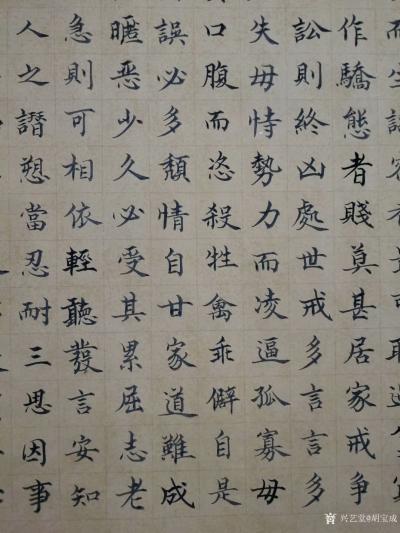 作驕態者賤莫甚居家戒爭
訟則終凶處世戒多言言多
失毋恃勢力而凌逼孤寡毋
口腹而恣殺牲禽乖僻自是
誤必多頹情自甘家道難成
暱惡少久必受其累屈志老
急則可相依輕聽發言安知
人之譖愬當忍耐三思因事
兴艺堂@胡宝成